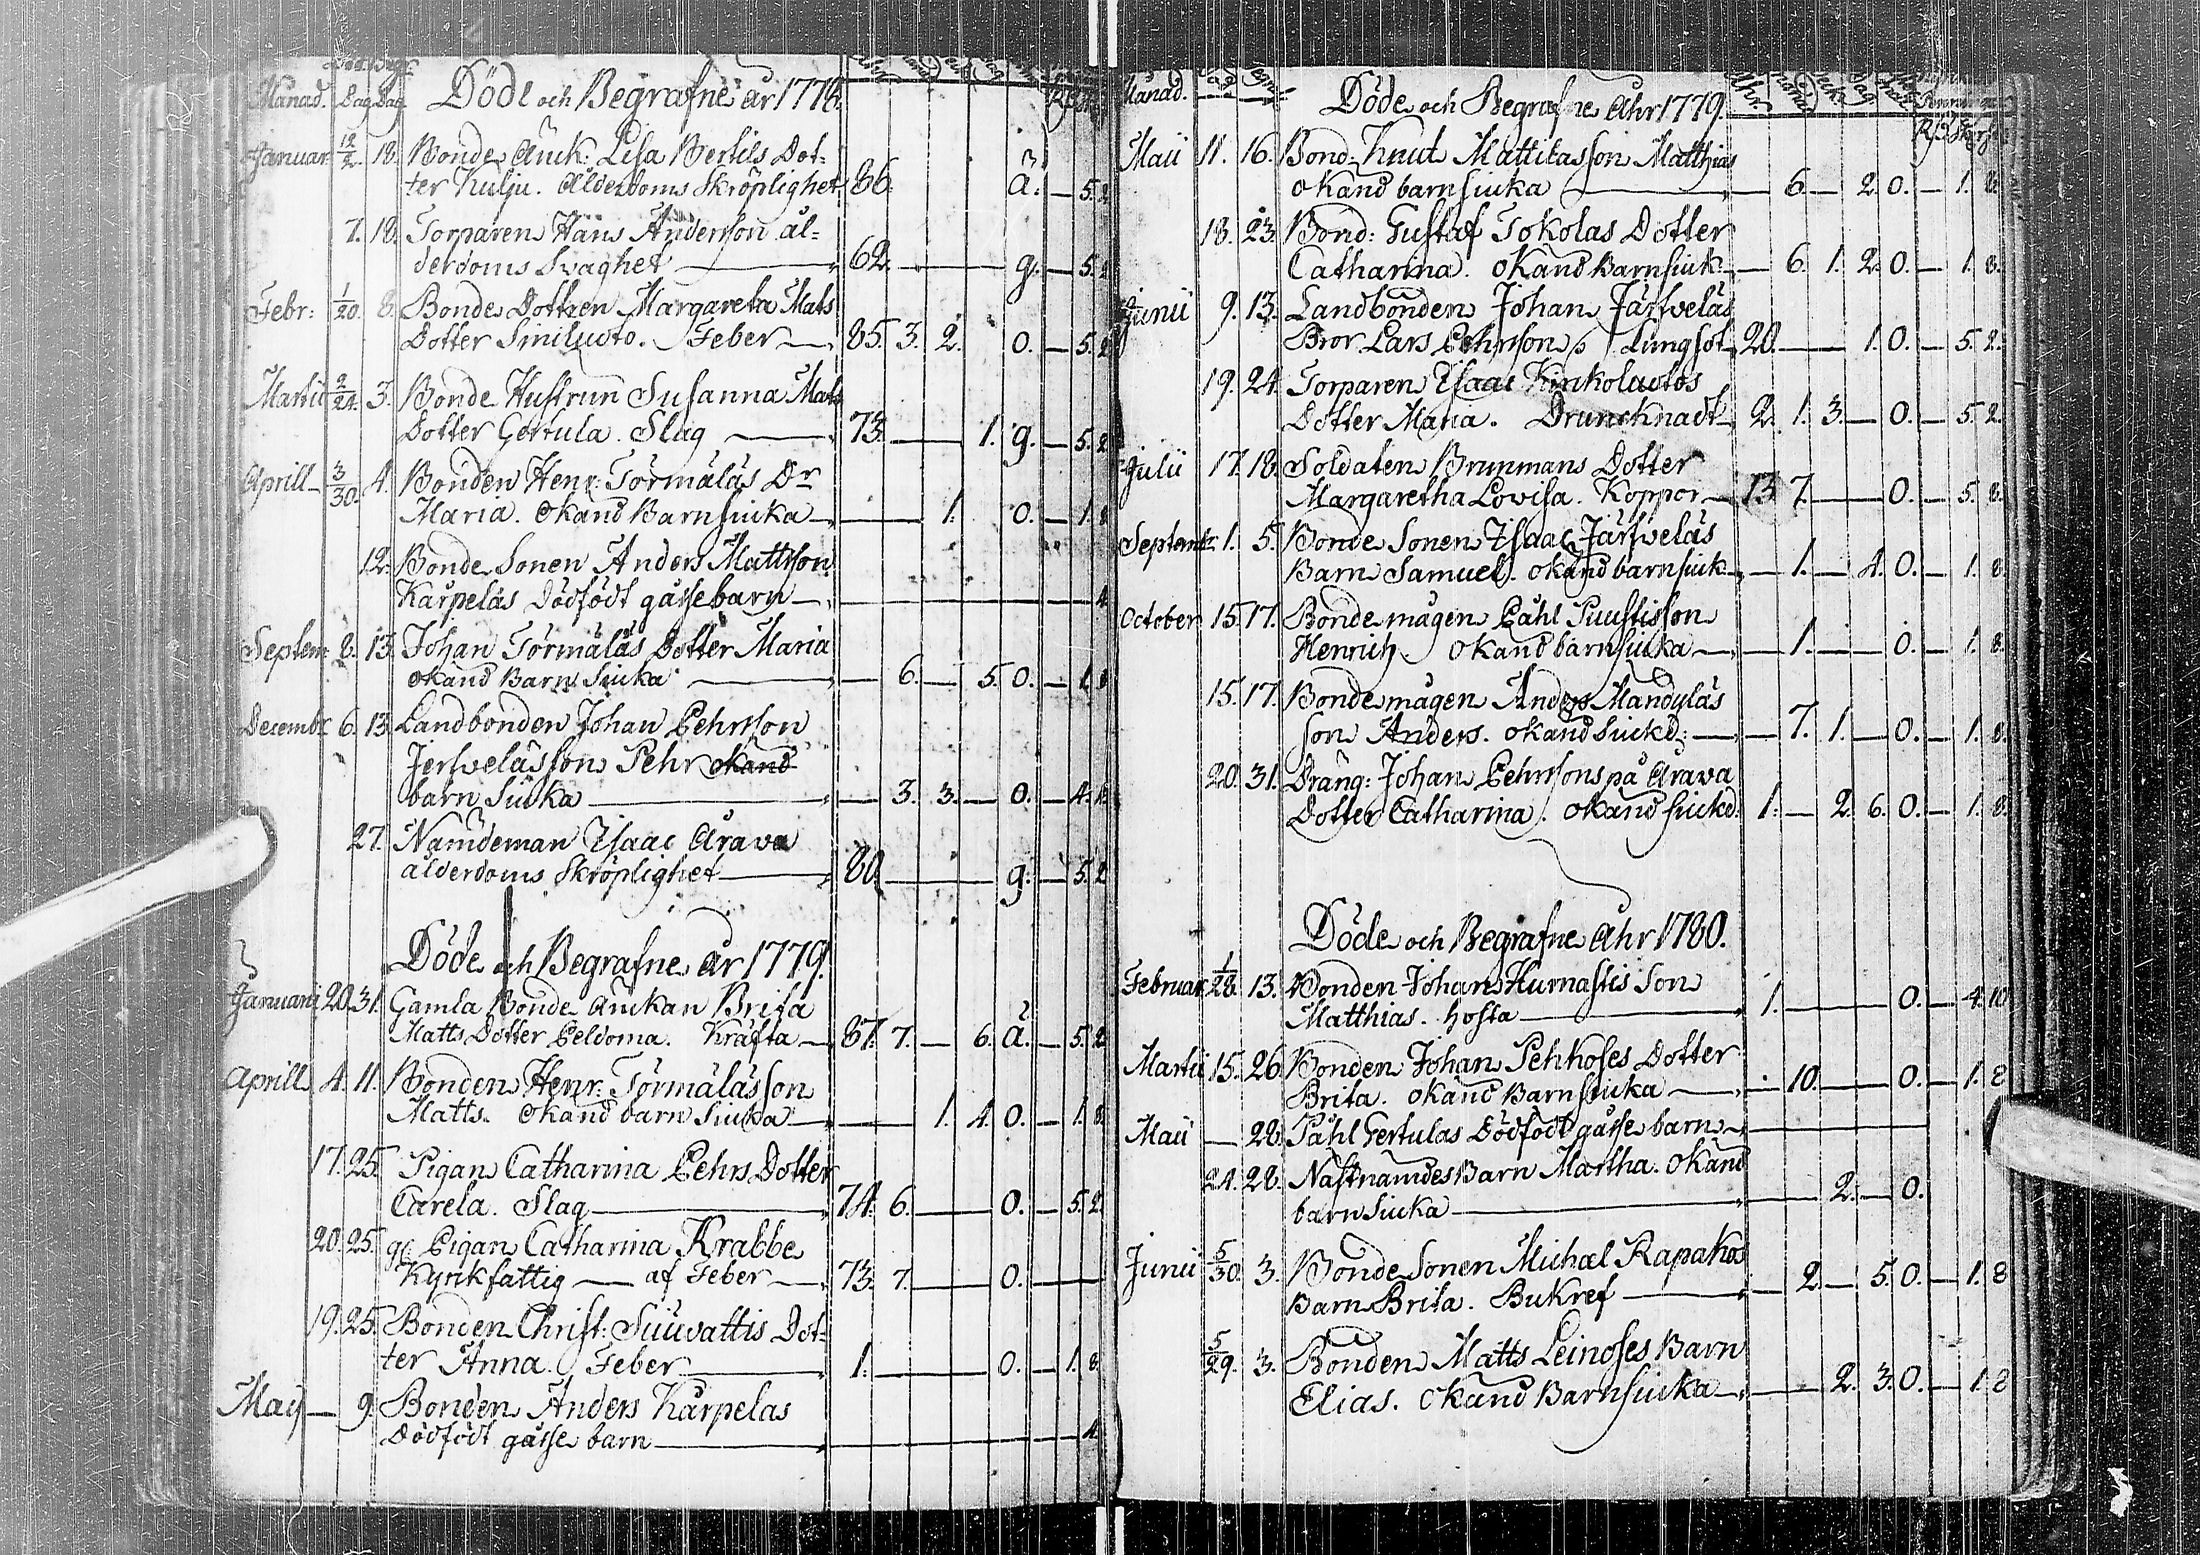 Månad. Dag Dag Döde och Begrafne år 1778.
Januar. 12/2. 18. Bonde Änk: Lisa Bertils Dot=
ter Kulju. Ålderdoms Skröplighet 86. ä. — 5. 2
7. 18. Torparen Hans Anderson ål=
derdoms Svaghet — 62. — g. — 5. 2
Febr: 1/20. 8. Bonde Dottren Margareta Mats
Dotter Siniluoto. Feber — 85. 3. 2. 0. — 5. 2
Martii 2/24. 3. Bonde Hustrun Susanna Mats
Dotter Gertula. Slag — 73. — 1. g. — 5. 2
Aprill — 3/30. 4. Bonden Henr: Törmäläs Dr
Maria. Okänd Barnsiuka — 1. 0. — 1. 8
12. Bonde Sonen Anders Mattson
Karpelas Dödfödt gåsse barn — 4
Septem: 8. 13. Johan Törmäläs Dotter Maria
okänd Barn Siuka — 6. — 5. 0. — 1. 8
Decembr. 6. 13. Landbonden Johan Pehrson
Jerfveläs son Pehr okänd
barn Siuka — 3. 3. — 0. — 4.
27. Nämdeman Isaac Arava
ålderdoms Skröplighet — 80. — g. — 5. 2
Döde och Begrafne År 1779.
Januarii 20. 31. Gamla Bonde Änkan Brita
Matts Dotter Peldoma. Kräfta — 87. 7. — 6. ä. — 5. 2
Aprill 4. 11. Bonden Henr: Törmäläs son
Matts. Okänd barn Siuka — 1. 4. 0. — 1. 8
17. 25. Pigan Catharina Pehrs Dotter
Carela. Slag — 74. 6. — 0. — 5. 2
20. 25. gl. Pigan Catharina Krabbe
Kyrkfattig — af Feber — 73. 7. — 0. —
19. 25. Bonden Christ: Siuvattis Dot=
ter Anna. Feber — 1. — 0. — 1. 8
May — 9. Bonden Anders Karpelas
Dödfödt gåsse barn — 4.
Månad. Döde och Begrafne Åhr 1779.
Maii 11. 16. Bond. Knut Mattilas son Matthias
okänd barnsiuka — 6. — 2. 0. — 1. 8.
18. 23. Bond: Gustaf Jokolas Dotter
Catharina. Okänd Barnsiuk — 6. 1. 2. 0. — 1. 8.
Junii 9. 13. Landbonden Johan Järfveläs
Bror Lars Pehrson. Lungsot 20. — 1. 0. — 5. 2.
19. 24. Torparen Isaac Kinkoluotos
Dotter Maria. Drunchnadt 2. 1. 3. — 0. — 5. 2.
Julii 17. 18. Soldaten Brunmans Dotter
Margaretha Lovisa. Koppor — 13 7. — 0. — 5. 8.
Septembr. 1. 5. Bonde Sonen Isaac Järfveläs
Barn Samuel. okänd barnsiuk — 1. — 4. 0. — 1. 8.
October 15. 17. Bonde mågen Påhl Puustis son
Henrich. okänd barnsiuka — 1. — 0. — 1. 8.
15. 17. Bonde mågen Anders Mandyläs
son Anders. okänd siukd: — 7. 1. — 0. — 1. 8.
20. 31. Dräng: Johan Pehrsons på Arava
Dotter Catharina. okänd siukd: 1. — 2. 6. 0. — 1. 8.
Döde och Begrafne Åhr 1780.
Februar. 1/28. 13. Bonden Johan Hurnastis son
Matthias. hosta — 1. — 0. — 4. 10
Martii 15. 26. Bonden Johan Pehkoses Dotter
Brita. Okänd Barnsiuka — 10. — 0. — 1. 8
Maii — 28. Påhl Gertulas Dödfödt gåsse barn —
24. 28. Nästnämdes Barn Martha. Okänd
barn siuka — 2. — 0.
Junii 5/30. 3. Bonde Sonen Michael Rapakos
Barn Brita. Bukref — 2. — 5. 0. — 1. 8
5/29. 3. Bonden Matts Leinoses Barn
Elias. Okänd Barnsiuka — 2. 3. 0. — 1. 8